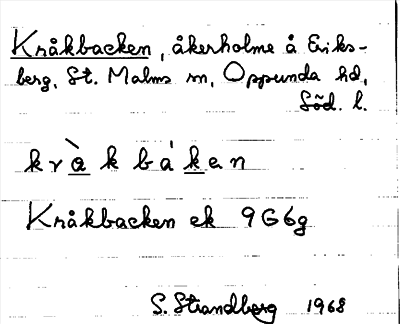 Kråkbacken, åkerholme å Eriks-
berg, St. Malms sn, Oppunda hd,
Söd. l.
kràkbákan
Kråkbacken ek 9G6g
S. Strandberg 1968